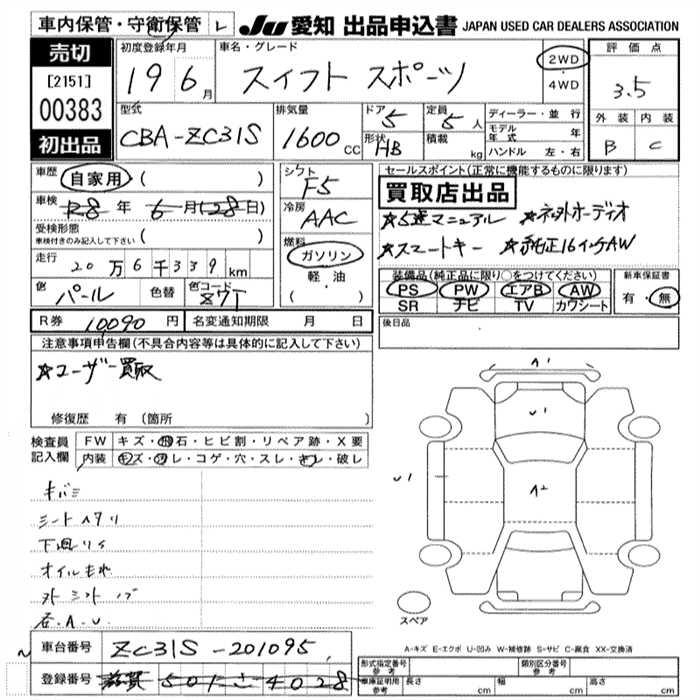 車内保管・守衛保管 レ
JU 愛知 出品申込書 JAPAN USED CAR DEALERS ASSOCIATION
売切
[2151]
00383
初出品
初度登録年月
19 6月
車名・グレード
スイフト スポーツ
2WD
・
4WD
評価点
3.5
外装 内装
B C
型式
CBA-ZC31S
排気量
1600cc
ドア 5
形状 HB
定員 5人
積載 kg
ディーラー・並行
モデル年式 年
ハンドル 左・右
車歴 自家用 ( )
車検 R8年 6月(28日)
受検形態
車検付きのみ記入して下さい ( )
走行 20万6千339km
色 パール 色替 色コード Z7T
シフト F5
冷房 AAC
燃料
ガソリン
軽・油
( )
セールスポイント(正常に機能するものに限ります)
買取店出品
★5速マニュアル ★社外オーディオ
★スマートキー ★純正16インチAW
装備品(純正品に限り○をつけてください)
PS PW エアB AW
SR ナビ TV カワシート
新車保証書
有・無
R券 10090円 名変通知期限 月 日
後日品
注意事項申告欄(不具合内容等は具体的に記入して下さい)
★ユーザー買取
修復歴 有 (箇所 )
検査員記入欄
FW キズ・飛石・ヒビ割・リペア跡・X要
内装 キズ・汚レ・コゲ・穴・スレ・キレ・破レ
キバミ
シートヘタリ
下廻りS
オイルもれ
外 シフトノブ
各A.U.
A1
U1
U1
A2
スペア
A-キズ E-エクボ U-凹み W-補修跡 S-サビ C-腐食 XX-交換済
車台番号 ZC31S-201095
登録番号 滋賀 501 さ 4028
形式指定番号 参考
類別区分番号 参考
車庫証明用 参考 長さ cm 幅 cm 高さ cm